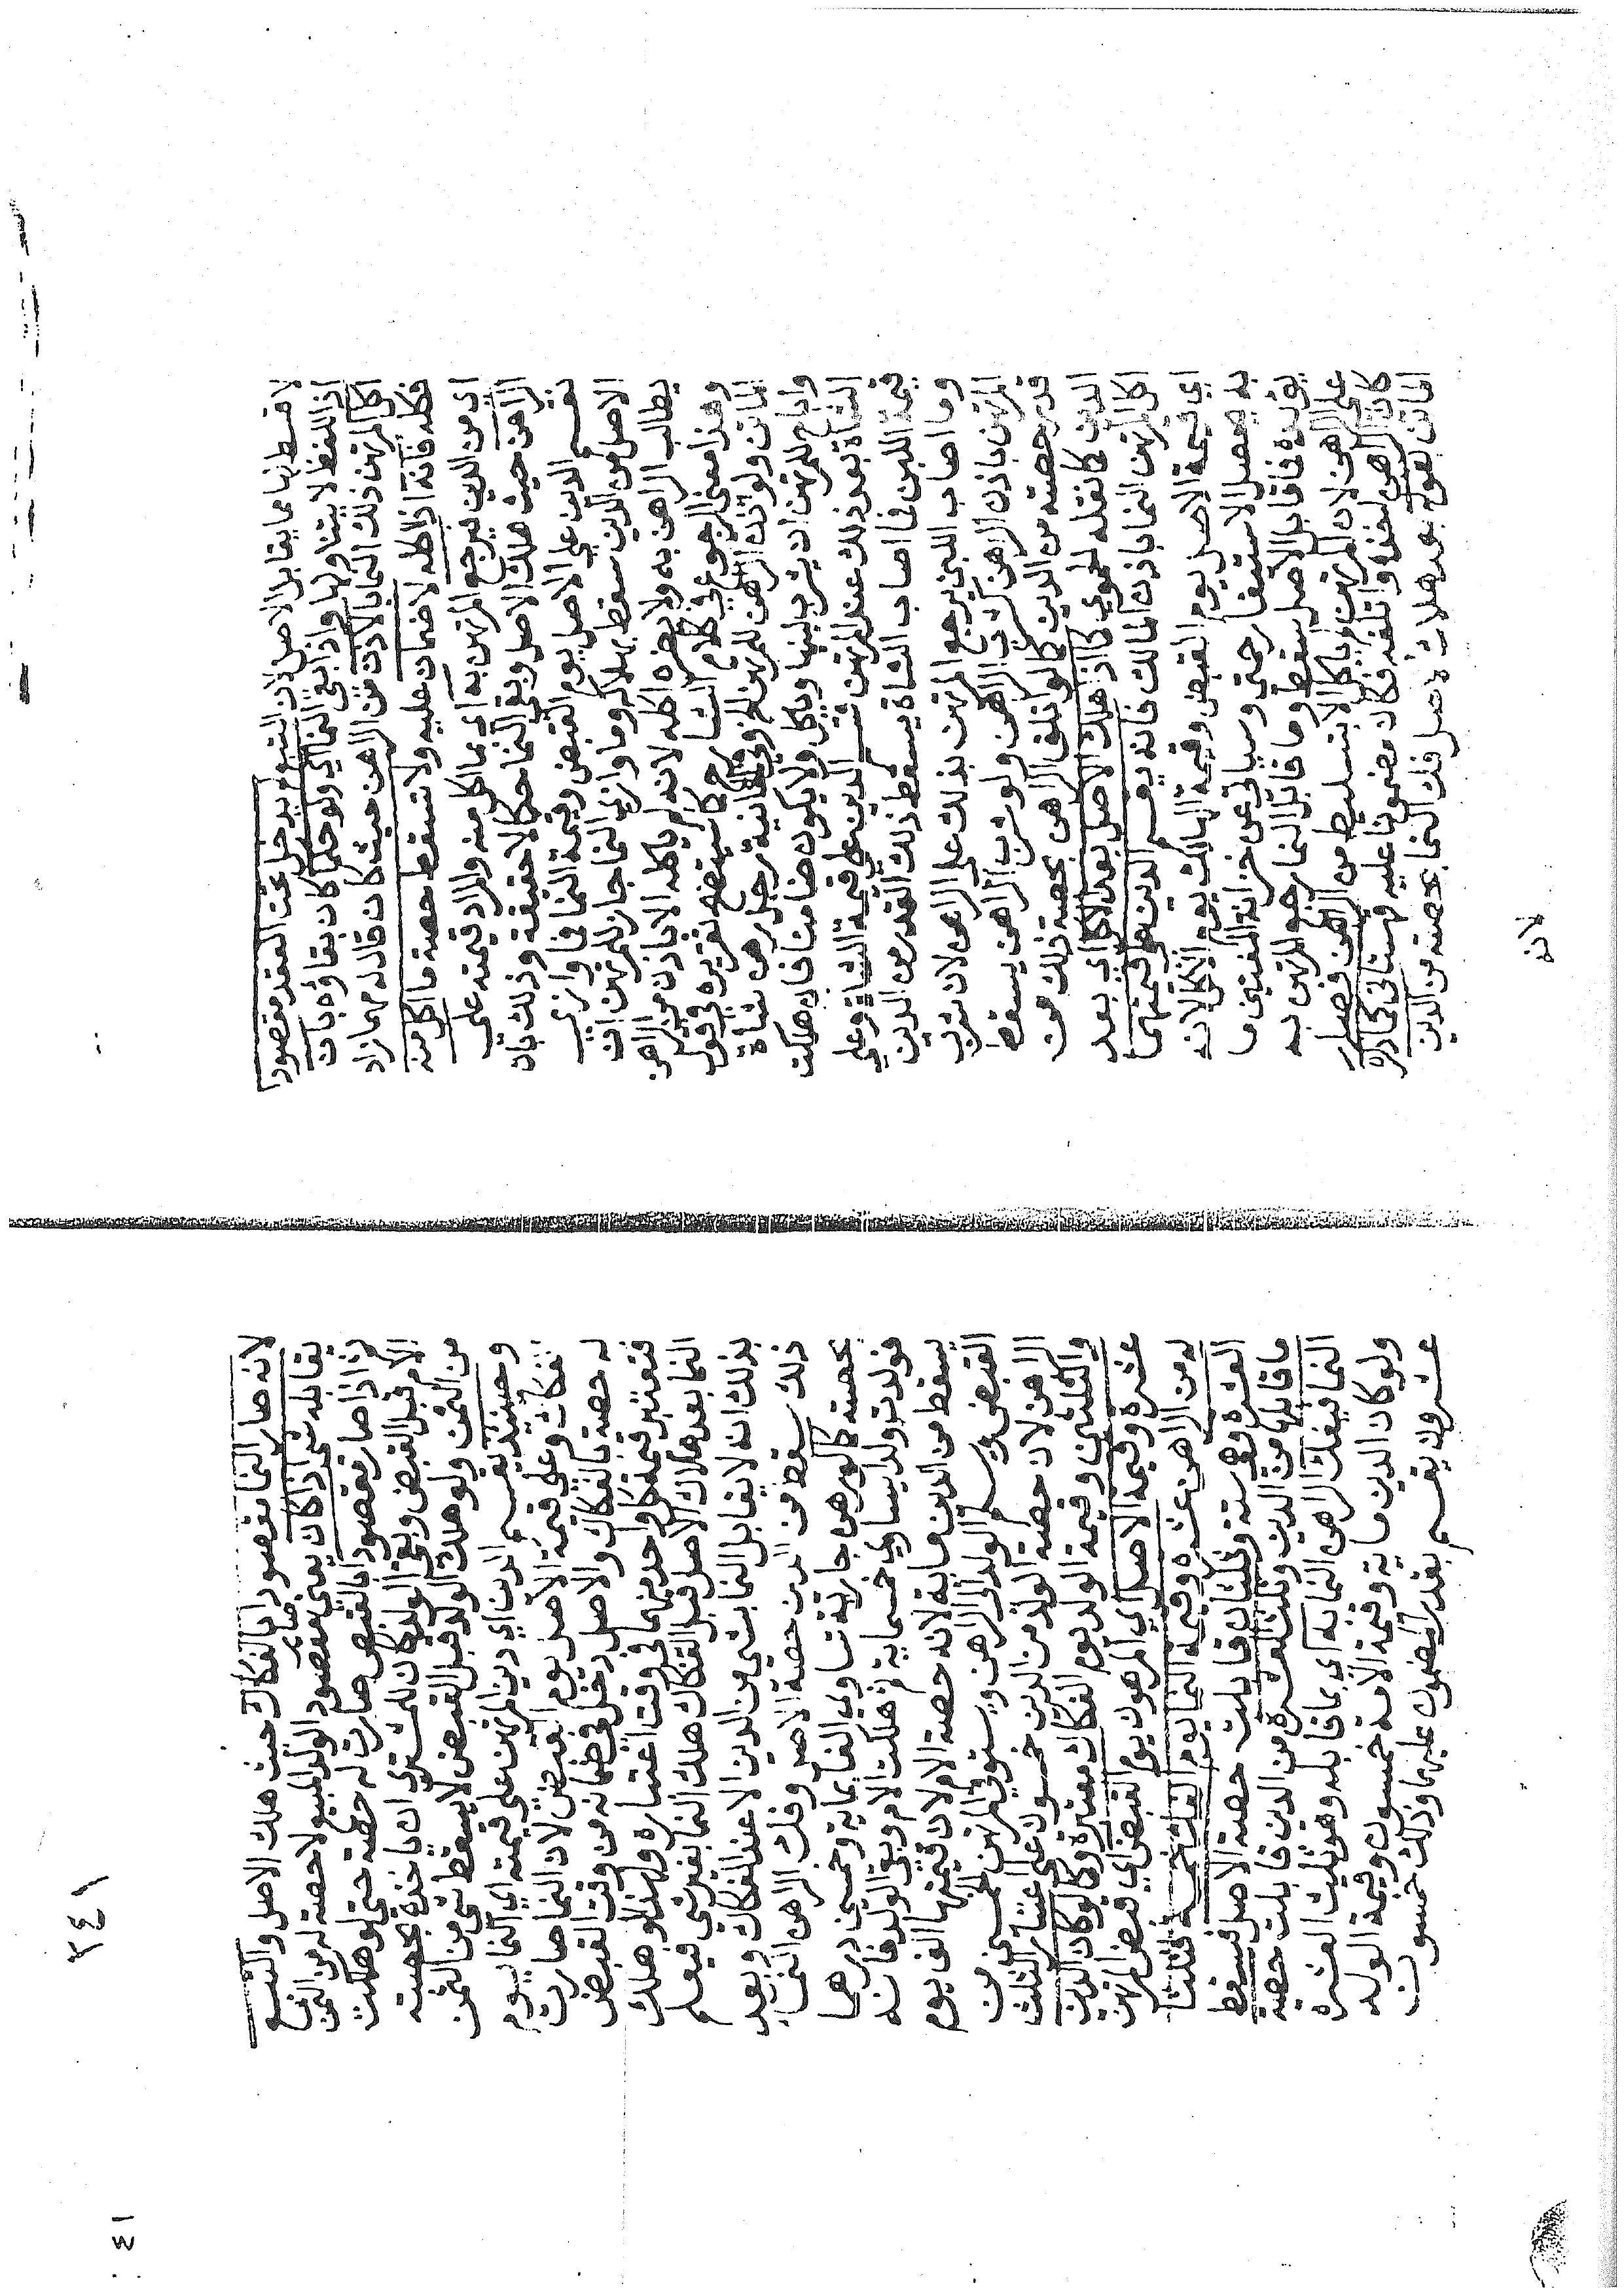 لا قسط لها مما يقابل الاصل لان التبع يدخل تحت العقد مقصودا
اذ اللفظ لا يتناولها واذا بقي النما اي ولو حكما كان بقاؤه بان
اكل المرتهن ذلك النما بالاذن من الراهن حيث كان قال له مهما زاد
فكله فانه اذا اكله لا ضمان عليه ولا تسقط حصة ما اكل منه
اي من الدين فيرجع المرتهن به اي بما اكل منه والمراد قيمته على
الراهن حيث هلك الاصل وبقي النما حكما لا حقيقة وذلك بان
يقسم الدين على الاصل يوم القبض وقيمة النما فما وازي
الاصل من الدين سقط بهلاكه وما وازي النما جاز للمرتهن ان
يطالب الراهن به ولا يضره اكله لانه لم ياكله الا باذن من الراهن
وهذا معنى الرجوع في كلام الشارح كما سيتضح تقريره في قول
الماتن ولو اذن الراهن للمرتهن الخ وفي الخانية رجل رهن شاة
واباح للمرتهن ان يشرب لبنها وياكل ولا يكون ضامنا فان هلكت
الشاة بعد ذلك عند المرتهن قسم الدين على قيمة الشاة وعلى
قيمة اللبن فما اصاب الشاة يسقط ذلك القدر من الدين
وما اصاب اللبن يرجع المرتهن بذلك على الراهن لان شرب
المرتهن باذن الراهن كشرب الراهن ولو شرب الراهن يسقط
قدر حصته من الدين كما لو اتلف الراهن بحصته ذلك من
الدين كما نقله الحموي كما اذا هلك الاصل بعد الاكل اي بعد
اكل المرتهن النما باذن المالك فانه يقسم الدين على قيمتهما
اي قيمة الاصل يوم القبض وقيمة الهالك يوم الاكل لانه
به يحصل الاستيفا رحمتي وسياتي عن خزانة المفتين ما
يؤيده فما قابل الاصل سقط وما قابل النما رجع المرتهن به
على الراهن لان المرتهن ما ياكل الا بتسليط من الراهن فصار
كان الراهن اخذه واتلفه فكان مضمونا عليه قهستاني كما ذكره
الماتن بقوله بعد هلاك الاصل فك النما بحصته من الدين
لانه
٢٤١
لانه صار النما مقصودا بالفكاك حيث هلك الاصل والتبع
يقابله شي اذا كان يعني مقصود الولد المبيع لا حصة له من الثمن
ثم اذا صار مقصودا بالقبض صارت له حصة حتى لو هلكت
الام قبل القبض وبقي الولد كان للمشتري ان ياخذه بحصته
من الثمن ولو هلك الولد قبل القبض لا يسقط شي من الثمن
وحينئذ يقسم الدين اي دين المرتهن على قيمته اي النما يوم
الفكاك وعلى قيمة الاصل يوم القبض لان النما صارت
له حصة بالفكاك والاصل دخل في ضمانه من وقت القبض
فتعتبر قيمة كل واحد منهما في وقت اعتباره ولهذا لو هلك
النما بعد هلاك الاصل قبل الفكاك هلك النما بغير شي فيعلم
بذلك انه لا يقابل النما بشي من الدين الا عند الفكاك وبعد
ذلك سقط من الدين حصة الاصل وفك الراهن النما
بحصته كما لو رهن جارية تساوي الفا بماية وخمسين درهما
فولدت ولدا يساوي خمسماية ثم هلكت الام وبقي الولد فانه
يسقط من الدين ماية لانه حصة الام لان قيمتها الف يوم
القبض ويسلم الولد الى الراهن ويستوفي المرتهن الخمسين من
الراهن لان حصة الولد من الدين خمسون على اعتبار الثلث
والثلثين وقيمة الولد يوم الفكاك معتبرة وكما لو كان الدين
عشرة وقيمة الاصل اي المرهون يوم القبض اي قبض المرتهن
له من الراهن عشرة وقيمة النما يوم الفك خمسة فثلثا
العشرة وهو ستة وثلثان قابلت حصة الاصل فيسقط
ما قابلها من الدين وثلث العشرة من الدين قابلت حصة
النما فيفك الراهن النما به اي بما قابله وهو ثلث العشرة
ولو كان الدين ماية وقيمة الامة خمسون وقيمة الولد
عشرون يقسم بقدر المضمون عليهما وذلك خمسون